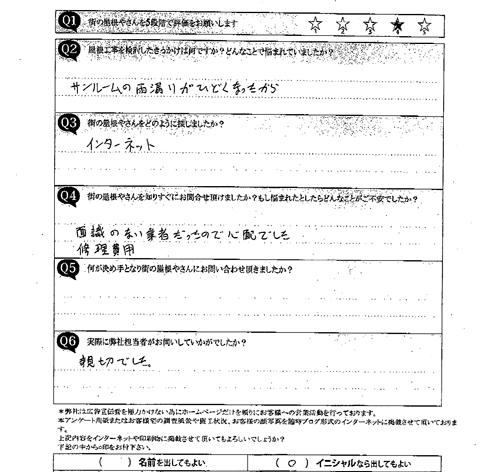 Q1 街の屋根やさんを5段階で評価をお願いします
☆ ☆ ☆ ★ ☆
Q2 屋根工事を検討したきっかけは何ですか？どんなことで悩まれていましたか？
サンルームの雨漏りがひどくなったから
Q3 街の屋根やさんをどのように探しましたか？
インターネット
Q4 街の屋根やさんを知りすぐにお問合せ頂けましたか？もし悩まれたとしたらどんなことがご不安でしたか？
面識のない業者だったので心配でした
修理費用
Q5 何が決め手となり街の屋根やさんにお問い合わせ頂きましたか？
Q6 実際に弊社担当者がお伺いしていかがでしたか？
親切でした。
＊弊社は広告宣伝費を極力かけない為にホームページだけを頼りにお客様への営業活動を行っております。
本アンケート用紙またはお客様宅の調査風景や施工状況、お客様の顔写真を随時ブログ形式のインターネットに掲載させて頂いておりま
す。
上記内容をインターネットや印刷物に掲載させて頂いてもよろしいでしょうか？
下記の中から○印をお付け下さい。
（　）名前を出してもよい （○）イニシャルなら出してもよい